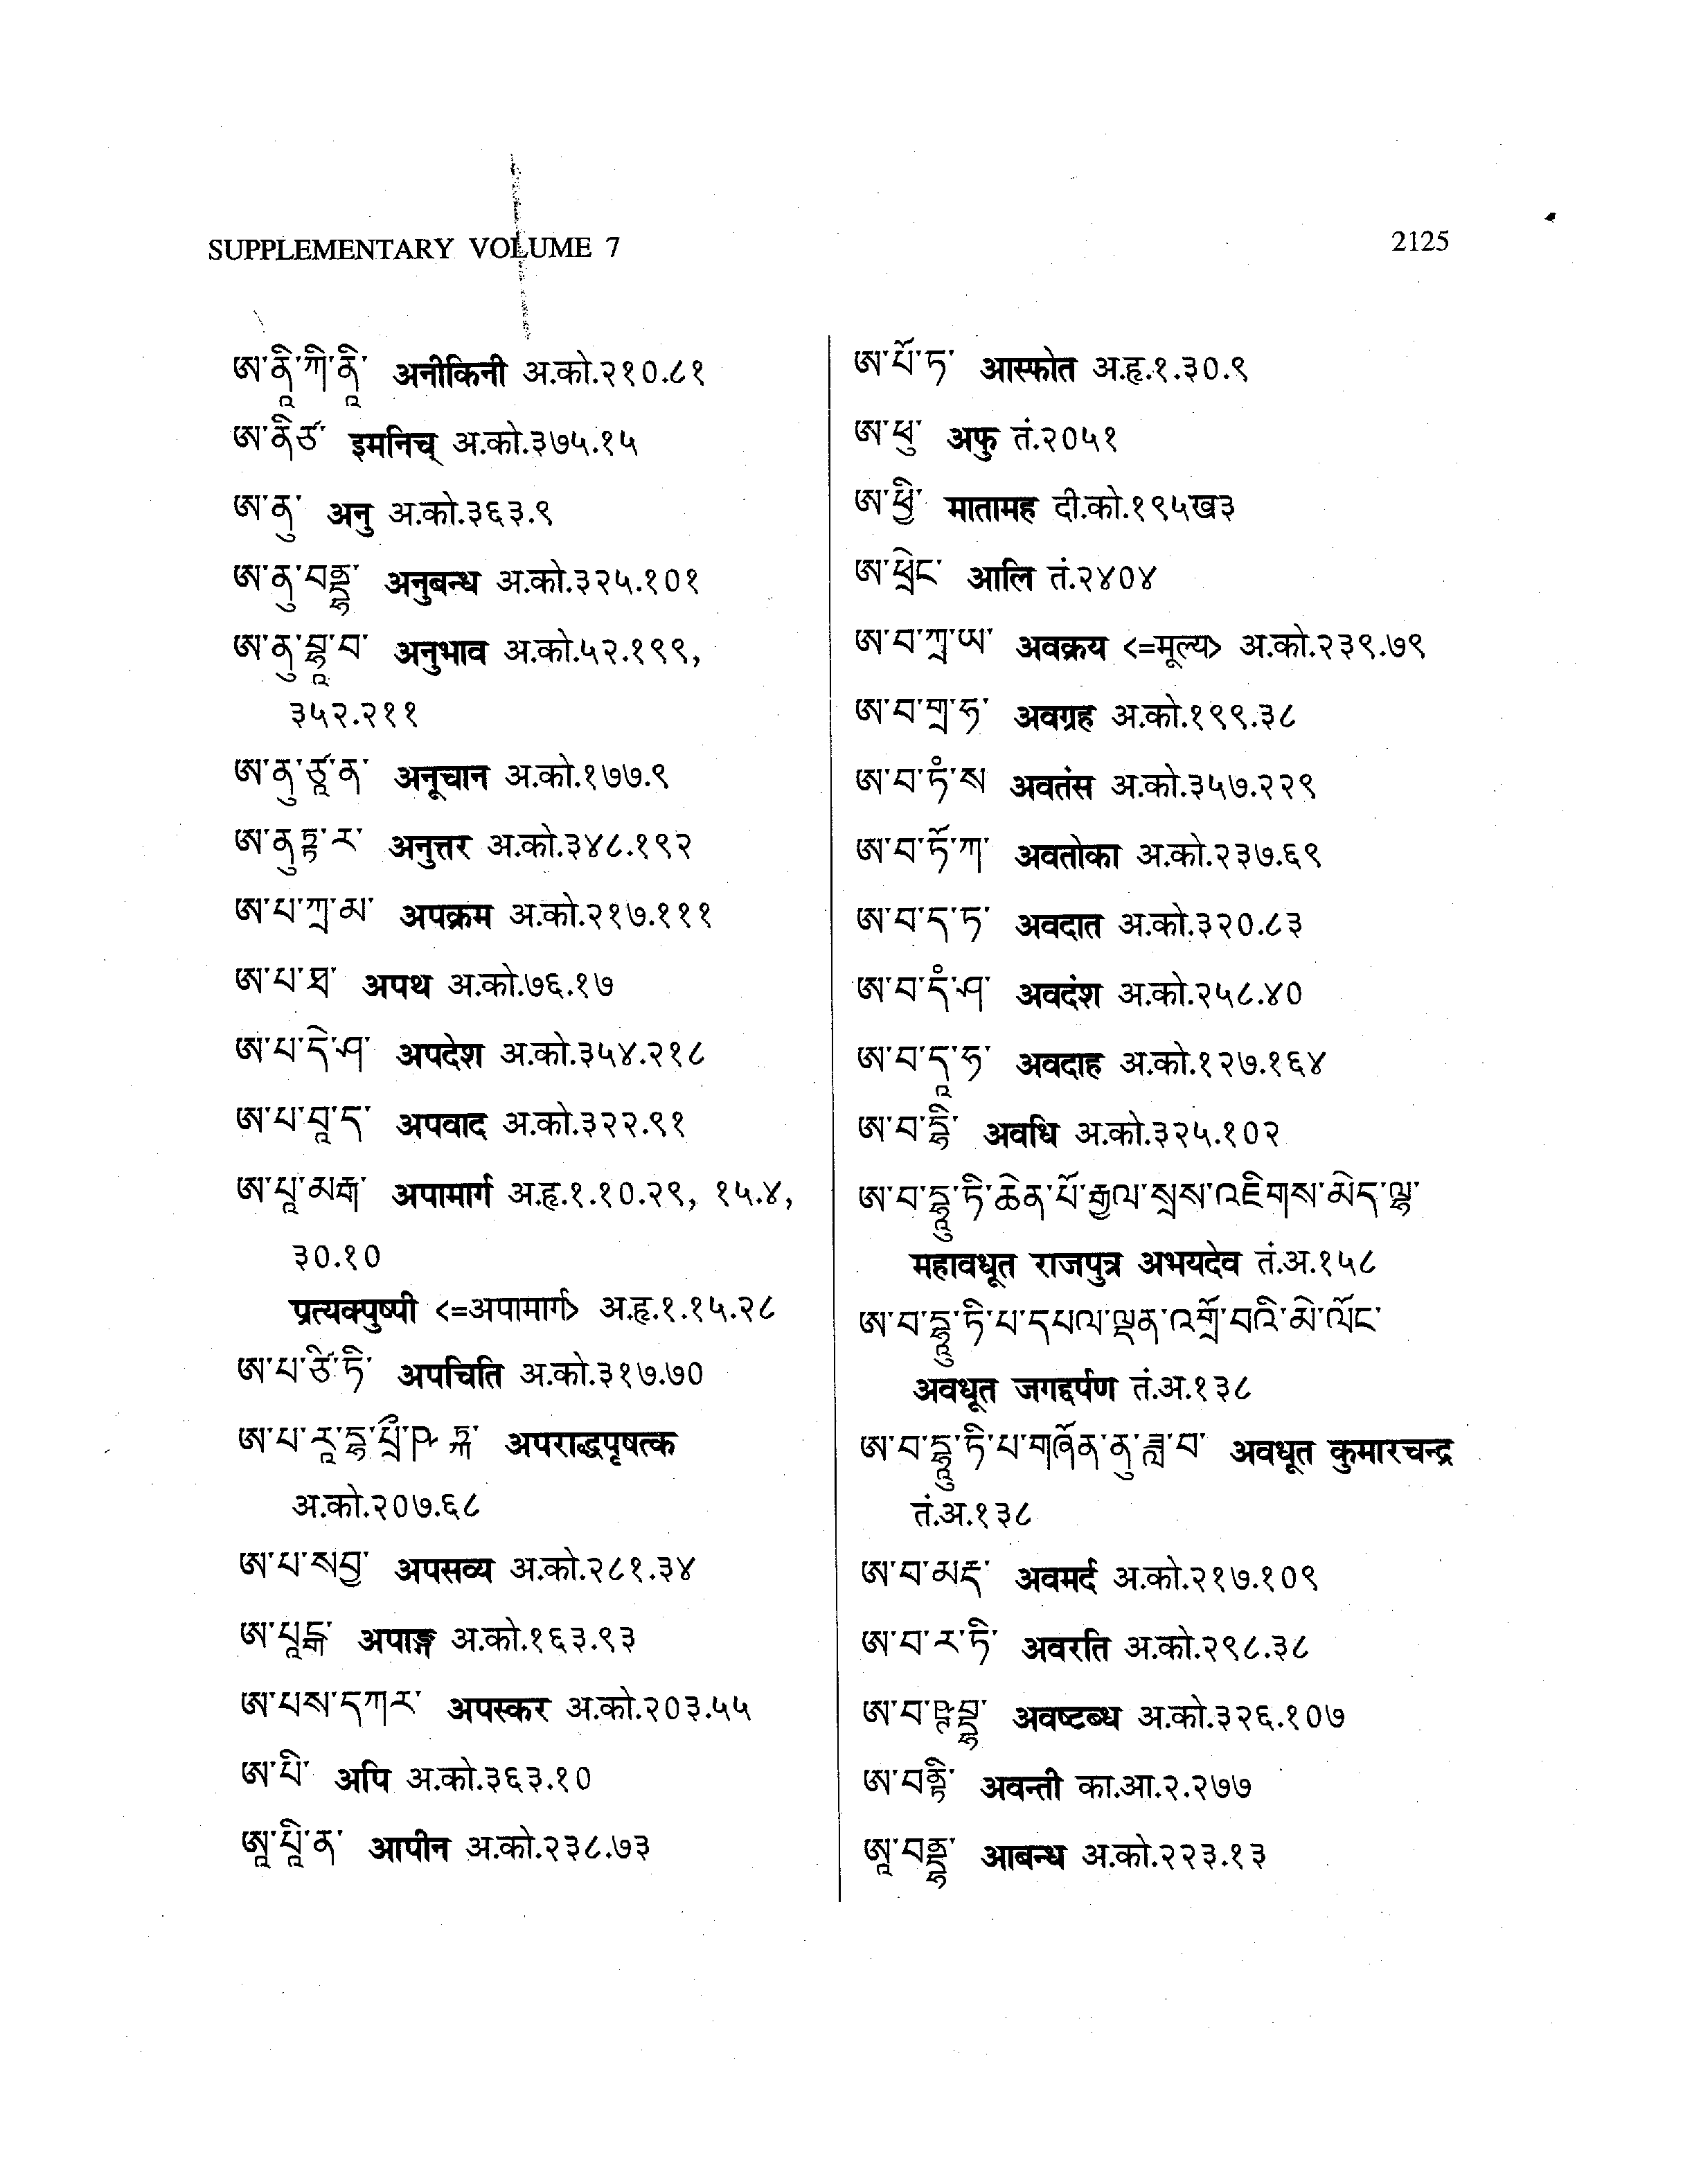 SUPPLEMENTARY VOLUME 7
2125
ཨ་ནཱི་ཀི་ནཱི་ अनीकिनी अ.को.२१०.८१
ཨ་ནིཙ་ इमनिच् अ.को.३७५.१५
ཨ་ནུ་ अनु अ.को.३६३.९
ཨ་ནུ་བནྡྷ་ अनुबन्ध अ.को.३२५.१०१
ཨ་ནུ་བྷཱ་བ་ अनुभाव अ.को.५२.१९९,
३५२.२११
ཨ་ནུ་ཙཱ་ན་ अनूचान अ.को.१७७.९
ཨ་ནུ་ཏྟ་ར་ अनुत्तर अ.को.३४८.१९२
ཨ་པ་ཀྲ་མ་ अपक्रम अ.को.२१७.१११
ཨ་པ་ཐ་ अपथ अ.को.७६.१७
ཨ་པ་དེ་ཤ་ अपदेश अ.को.३५४.२१८
ཨ་པ་བཱ་ད་ अपवाद अ.को.३२२.९१
ཨ་པཱ་མརྒ་ अपामार्ग अ.हृ.१.१०.२९, १५.४,
३०.१०
प्रत्यक्पुष्पी <=अपामार्ग> अ.हृ.१.१५.२८
ཨ་པ་ཙི་ཏི་ अपचिति अ.को.३१७.७०
ཨ་པ་རཱ་དྡྷ་པྲྀ་ཥ་ཏྐ་ अपराद्धपृषत्क
अ.को.२०७.६८
ཨ་པ་སབྱ་ अपसव्य अ.को.२८१.३४
ཨ་པཱངྒ་ अपाङ्ग अ.को.१६३.९३
ཨ་པས་དཀར་ अपस्कर अ.को.२०३.५५
ཨ་པི་ अपि अ.को.३६३.१०
ཨཱ་པཱི་ན་ आपीन अ.को.२३८.७३
ཨ་པོ་ཏ་ आस्फोत अ.हृ.१.३०.९
ཨ་ཕུ་ अफु तं.२०५१
ཨ་ཕྱི་ मातामह दी.को.१९५ख३
ཨ་ཕྲེང་ आलि तं.२४०४
ཨ་བ་ཀྲ་ཡ་ अवक्रय <=मूल्य> अ.को.२३९.७९
ཨ་བ་གྲ་ཧ་ अवग्रह अ.को.१९९.३८
ཨ་བ་ཏཾ་ས अवतंस अ.को.३५७.२२९
ཨ་བ་ཏོ་ཀ་ अवतोका अ.को.२३७.६९
ཨ་བ་ད་ཏ་ अवदात अ.को.३२०.८३
ཨ་བ་དཾ་ཤ་ अवदंश अ.को.२५८.४०
ཨ་བ་དཱ་ཧ་ अवदाह अ.को.१२७.१६४
ཨ་བ་དྷི་ अवधि अ.को.३२५.१०२
ཨ་བ་དྷཱུ་ཏི་ཆེན་པོ་རྒྱལ་སྲས་འཇིགས་མེད་ལྷ་
महावधूत राजपुत्र अभयदेव तं.अ.१५८
ཨ་བ་དྷཱུ་ཏི་པ་དཔལ་ལྡན་འགྲོ་བའི་མེ་ལོང་
अवधूत जगद्दर्पण तं.अ.१३८
ཨ་བ་དྷཱུ་ཏི་པ་གཞོན་ནུ་ཟླ་བ་ अवधूत कुमारचन्द्र
तं.अ.१३८
ཨ་བ་མརྡ་ अवमर्द अ.को.२१७.१०९
ཨ་བ་ར་ཏི་ अवरति अ.को.२९८.३८
ཨ་བ་ཥྚ་བྡྷ་ अवष्टब्ध अ.को.३२६.१०७
ཨ་བནྟི་ अवन्ती का.आ.२.२७७
ཨཱ་བནྡྷ་ आबन्ध अ.को.२२३.१३